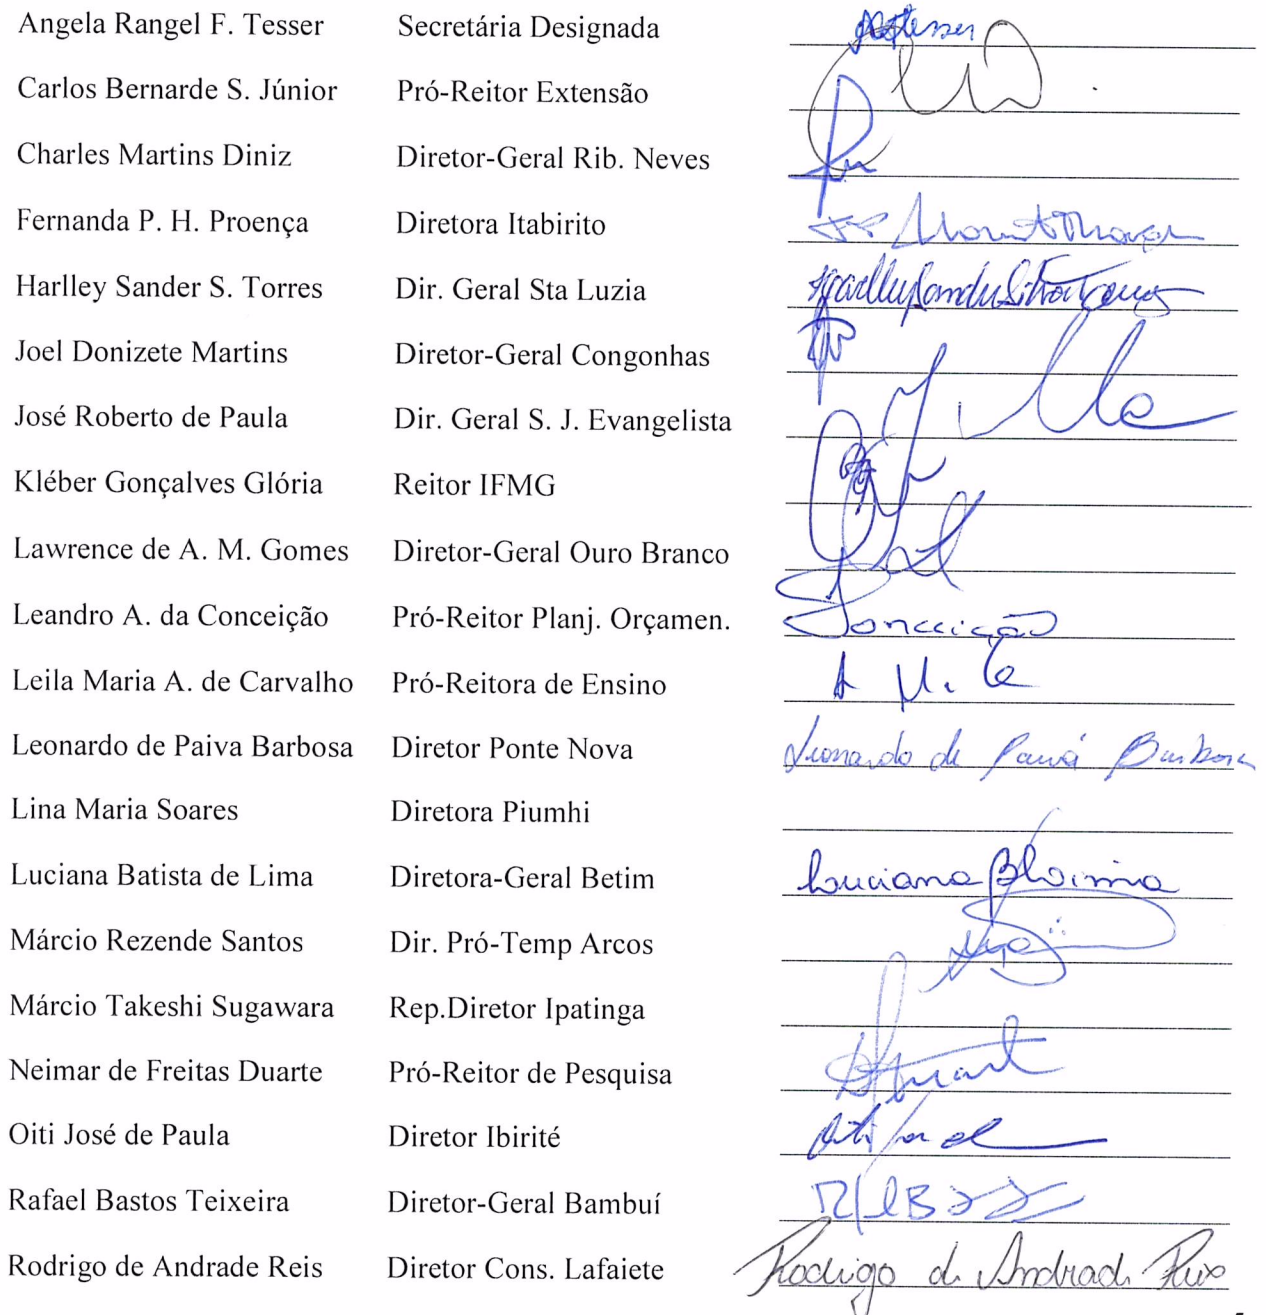 Angela Rangel F. Tesser Secretária Designada
Carlos Bernarde S. Júnior Pró-Reitor Extensão
Charles Martins Diniz Diretor-Geral Rib. Neves
Fernanda P. H. Proença Diretora Itabirito
Harlley Sander S. Torres Dir. Geral Sta Luzia HarlleySanderSilvaTorres
Joel Donizete Martins Diretor-Geral Congonhas
José Roberto de Paula Dir. Geral S. J. Evangelista
Kléber Gonçalves Glória Reitor IFMG
Lawrence de A. M. Gomes Diretor-Geral Ouro Branco
Leandro A. da Conceição Pró-Reitor Planj. Orçamen. Conceição
Leila Maria A. de Carvalho Pró-Reitora de Ensino
Leonardo de Paiva Barbosa Diretor Ponte Nova Leonardo de Paiva Barbosa
Lina Maria Soares Diretora Piumhi
Luciana Batista de Lima Diretora-Geral Betim Luciana BLima
Márcio Rezende Santos Dir. Pró-Temp Arcos
Márcio Takeshi Sugawara Rep.Diretor Ipatinga
Neimar de Freitas Duarte Pró-Reitor de Pesquisa
Oiti José de Paula Diretor Ibirité
Rafael Bastos Teixeira Diretor-Geral Bambuí
Rodrigo de Andrade Reis Diretor Cons. Lafaiete Rodrigo de Andrade Reis